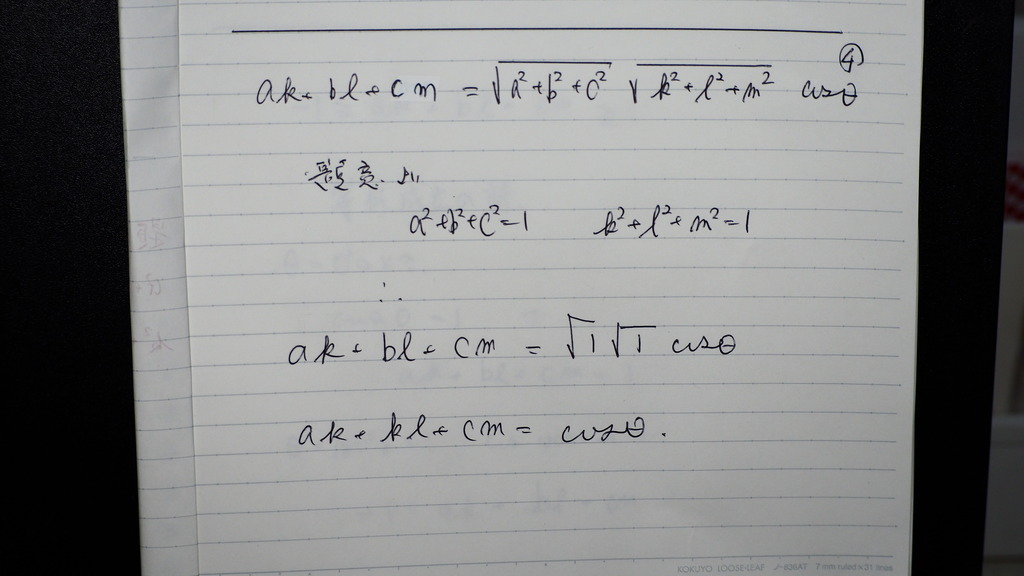 ④
ak + bl + cm = √a²+b²+c² √k²+l²+m² cosθ
題意より
a²+b²+c²=1 k²+l²+m²=1
∴
ak + bl + cm = √1 √1 cosθ
ak + kl + cm = cosθ.
KOKUYO LOOSE-LEAF ノ-836AT 7 mm ruled×31 lines